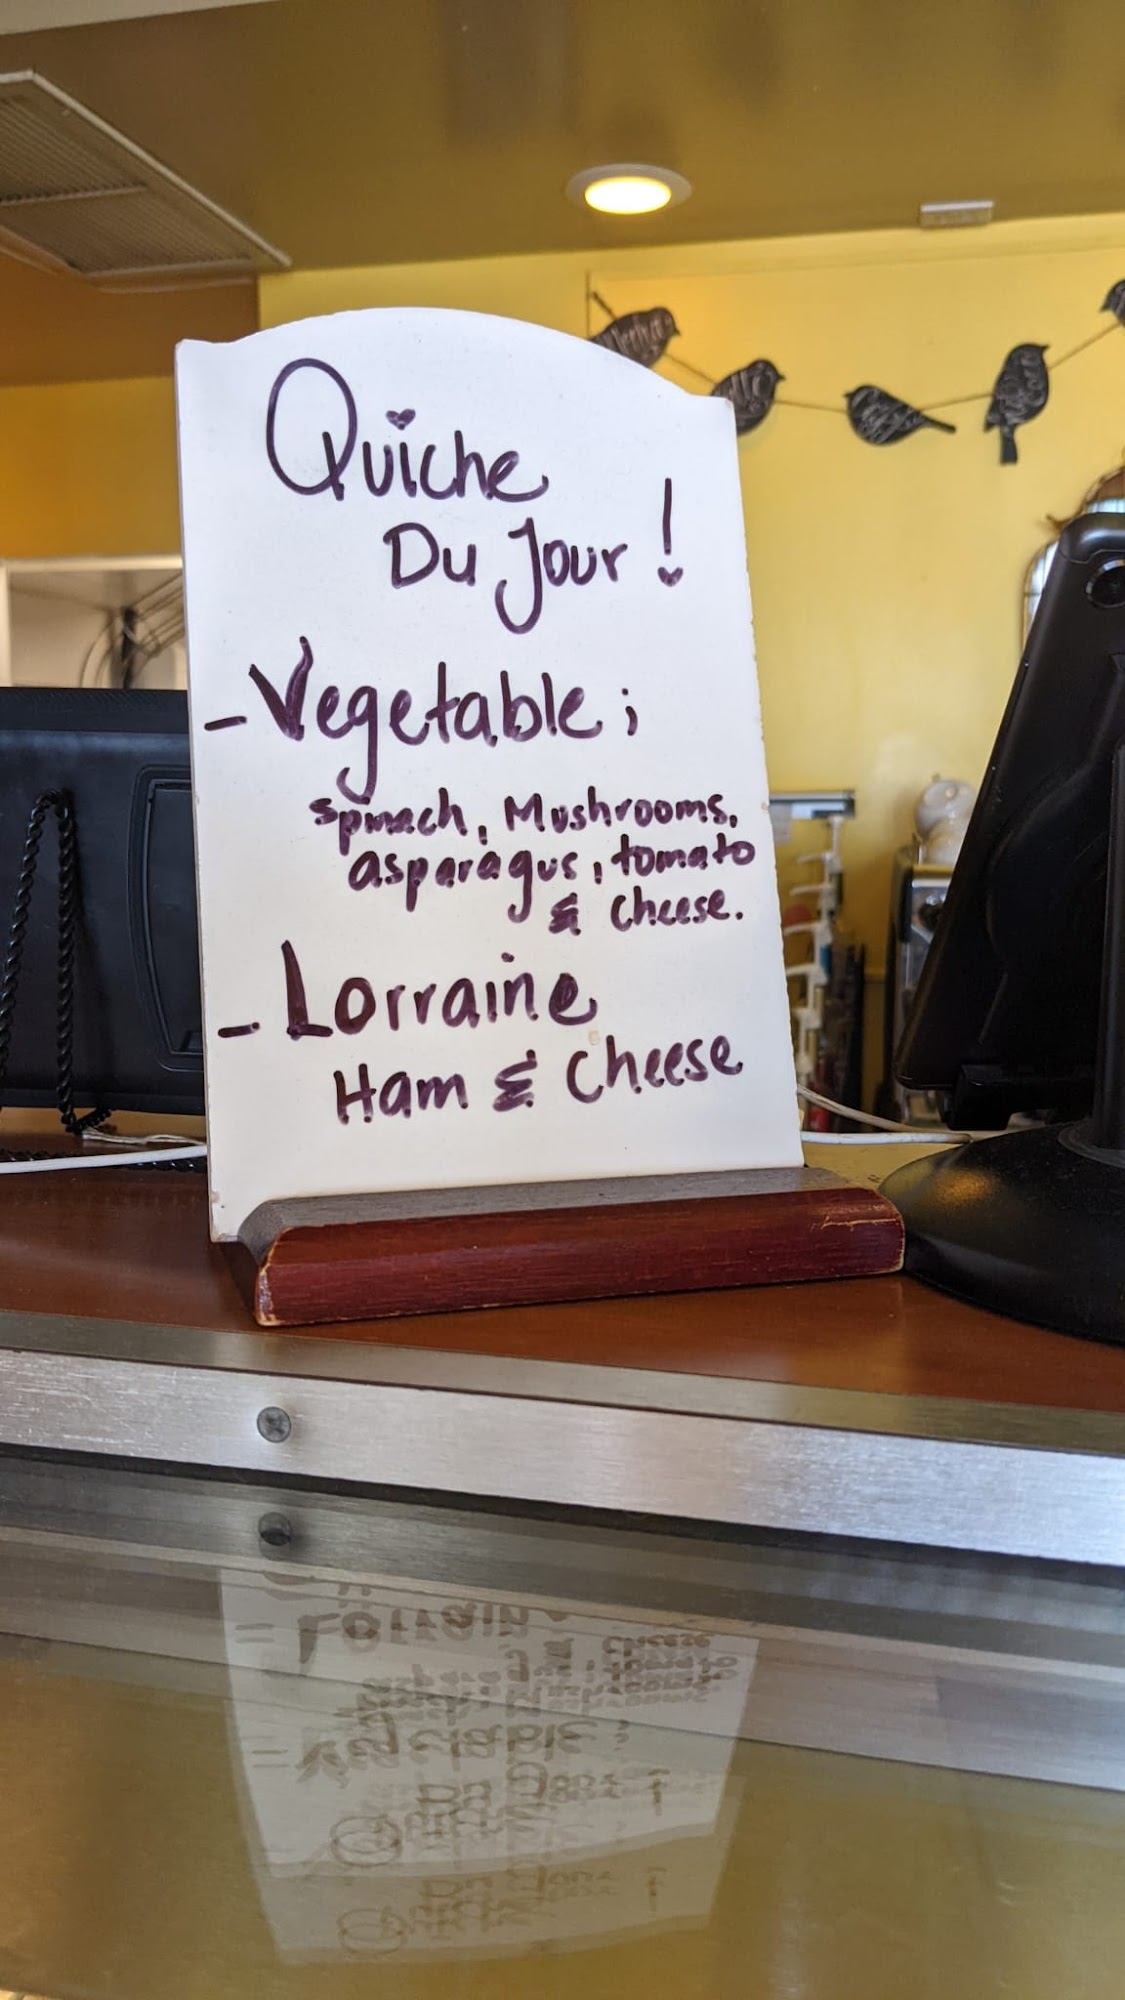 Quiche
Du Jour!
- Vegetable;
spinach, Mushrooms,
asparagus, tomato
& cheese.
- Lorraine
Ham & Cheese